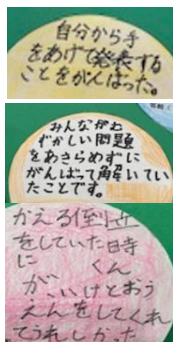 自分から手
をあげて発表する
ことをがんばった。
みんながむ
ずかしい問題
をあきらめずに
がんばって解いてい
たことです。
かえる倒立
をしていた時
に　　くん
が、いけとおう
えんをしてくれ
てうれしかった